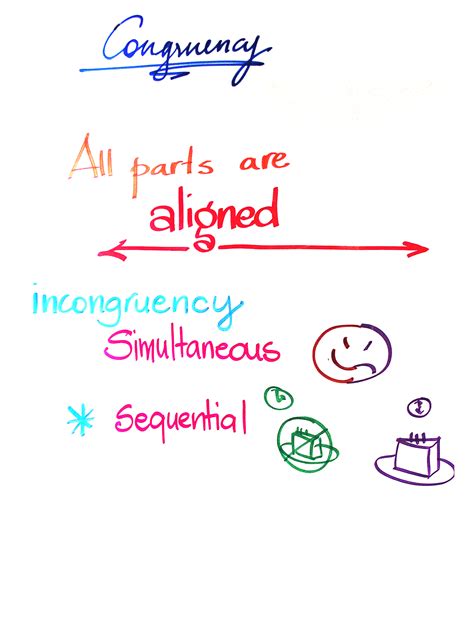 Congruency
All parts are
aligned
incongruency
Simultaneous
* Sequential